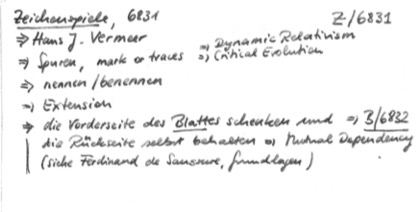 Zeichenspiele, 6831 Z/6831
⇒ Hans J. Vermeer
⇒ Spuren, mark or traces ⇒ Dynamic Relativism
⇒ Critical Evolution
⇒ nennen/benennen
⇒ Extension
⇒ die Vorderseite des Blattes schenken und ⇒ B/6832
die Rückseite selbst behalten ⇒ Mutual Dependency
(siehe Ferdinand de Saussure, Grundlagen)